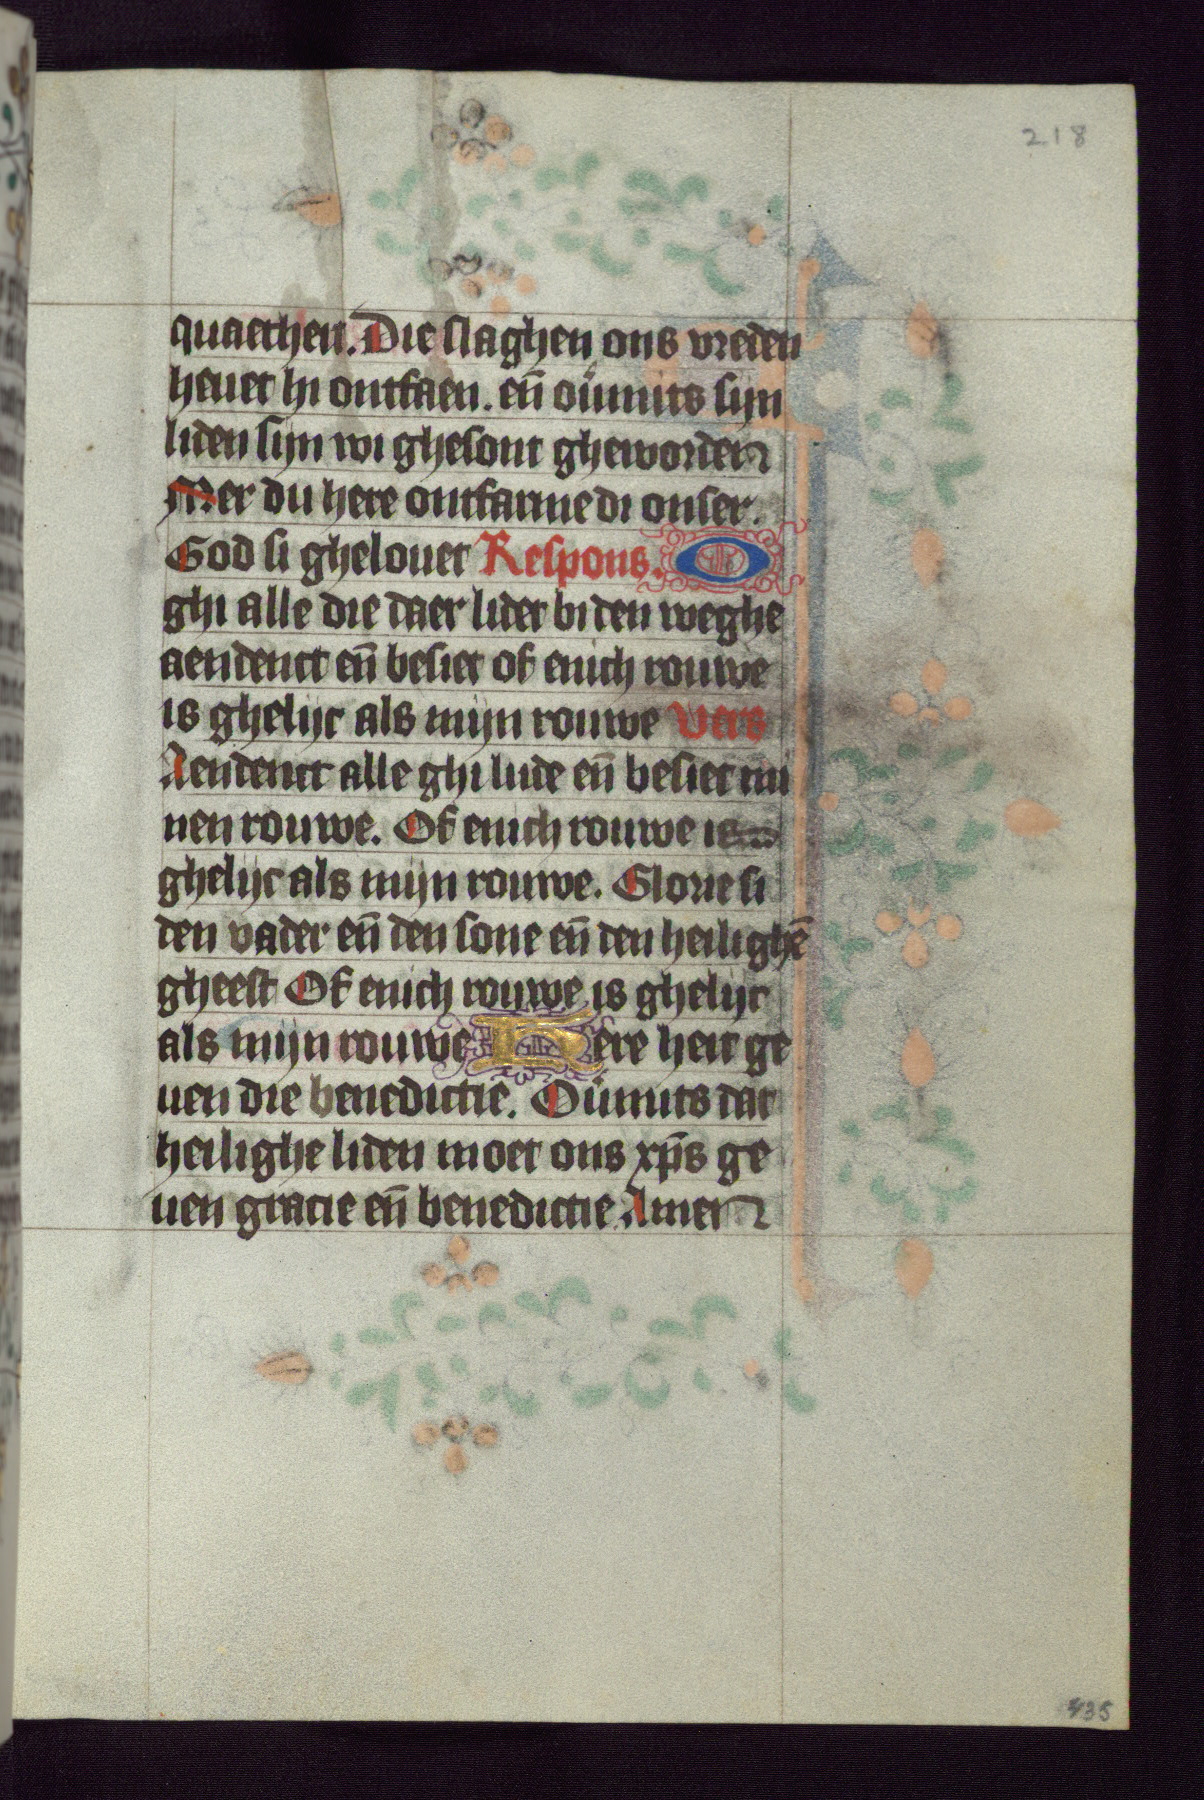 218
quaetheit. Die slaghen ons vreden
heuet hi ontfaen. eñ ou̅mits sijn
liden sijn wi ghesont gheworden
Mer du here ontfarme di onser.
God si ghelouet Respons. O
ghi alle die daer lidet bi den weghe
aendenct eñ besiet of enich rouwe
is ghelijc als mijn rouwe Vers
Aendenct alle ghi lude eñ besiet mi
nen rouwe. Of enich rouwe is
ghelijc als mijn rouwe. Glorie si
den vader eñ den sone eñ den heilighē
gheest Of enich rouwe is ghelijc
als mijn rouwe Here heit ge
uen die benedictie. Ou̅mits dat
heilighe liden moet ons xp̄s ge
uen gracie eñ benedictie Amen
435